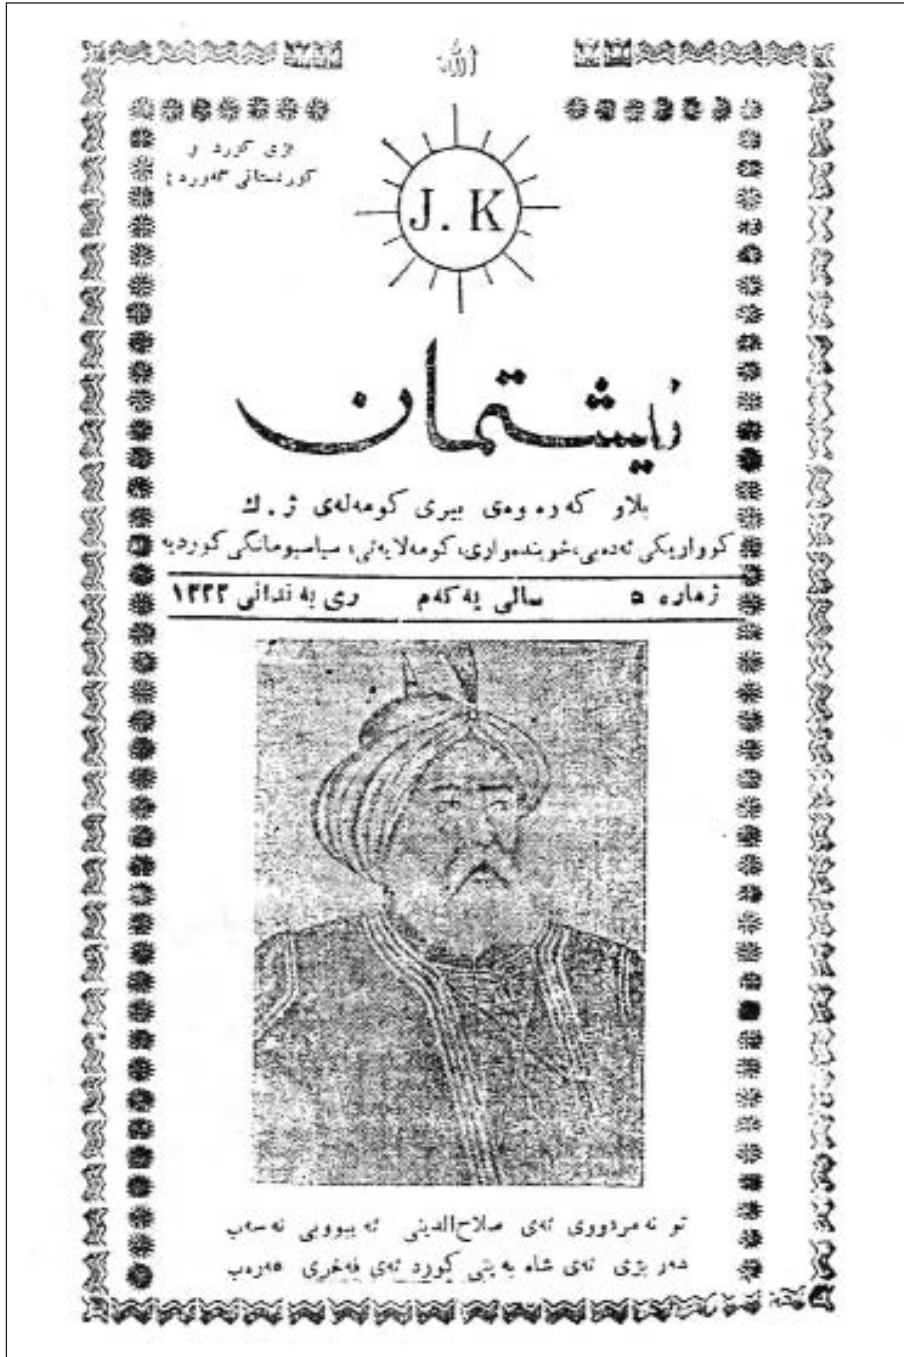 الله
بژی کورد و
کوردستانی گەورە
J. K
نیشتمان
بلاو کەرەوەی بیری کومەلەی ژ. ك
کوواریکی ئەدەبی، خویندەواری، کومەلایەتی، سیاسیومانگی کوردیە
ژمارە ٥ سالی یەکەم ری بەندانی ١٣٢٢
تو نەمردووی ئەی صلاح‌الدینی ئەییوبی نەسەب
هەر بژی ئەی شاە بەیتی کورد ئەی فەخری عەرەب